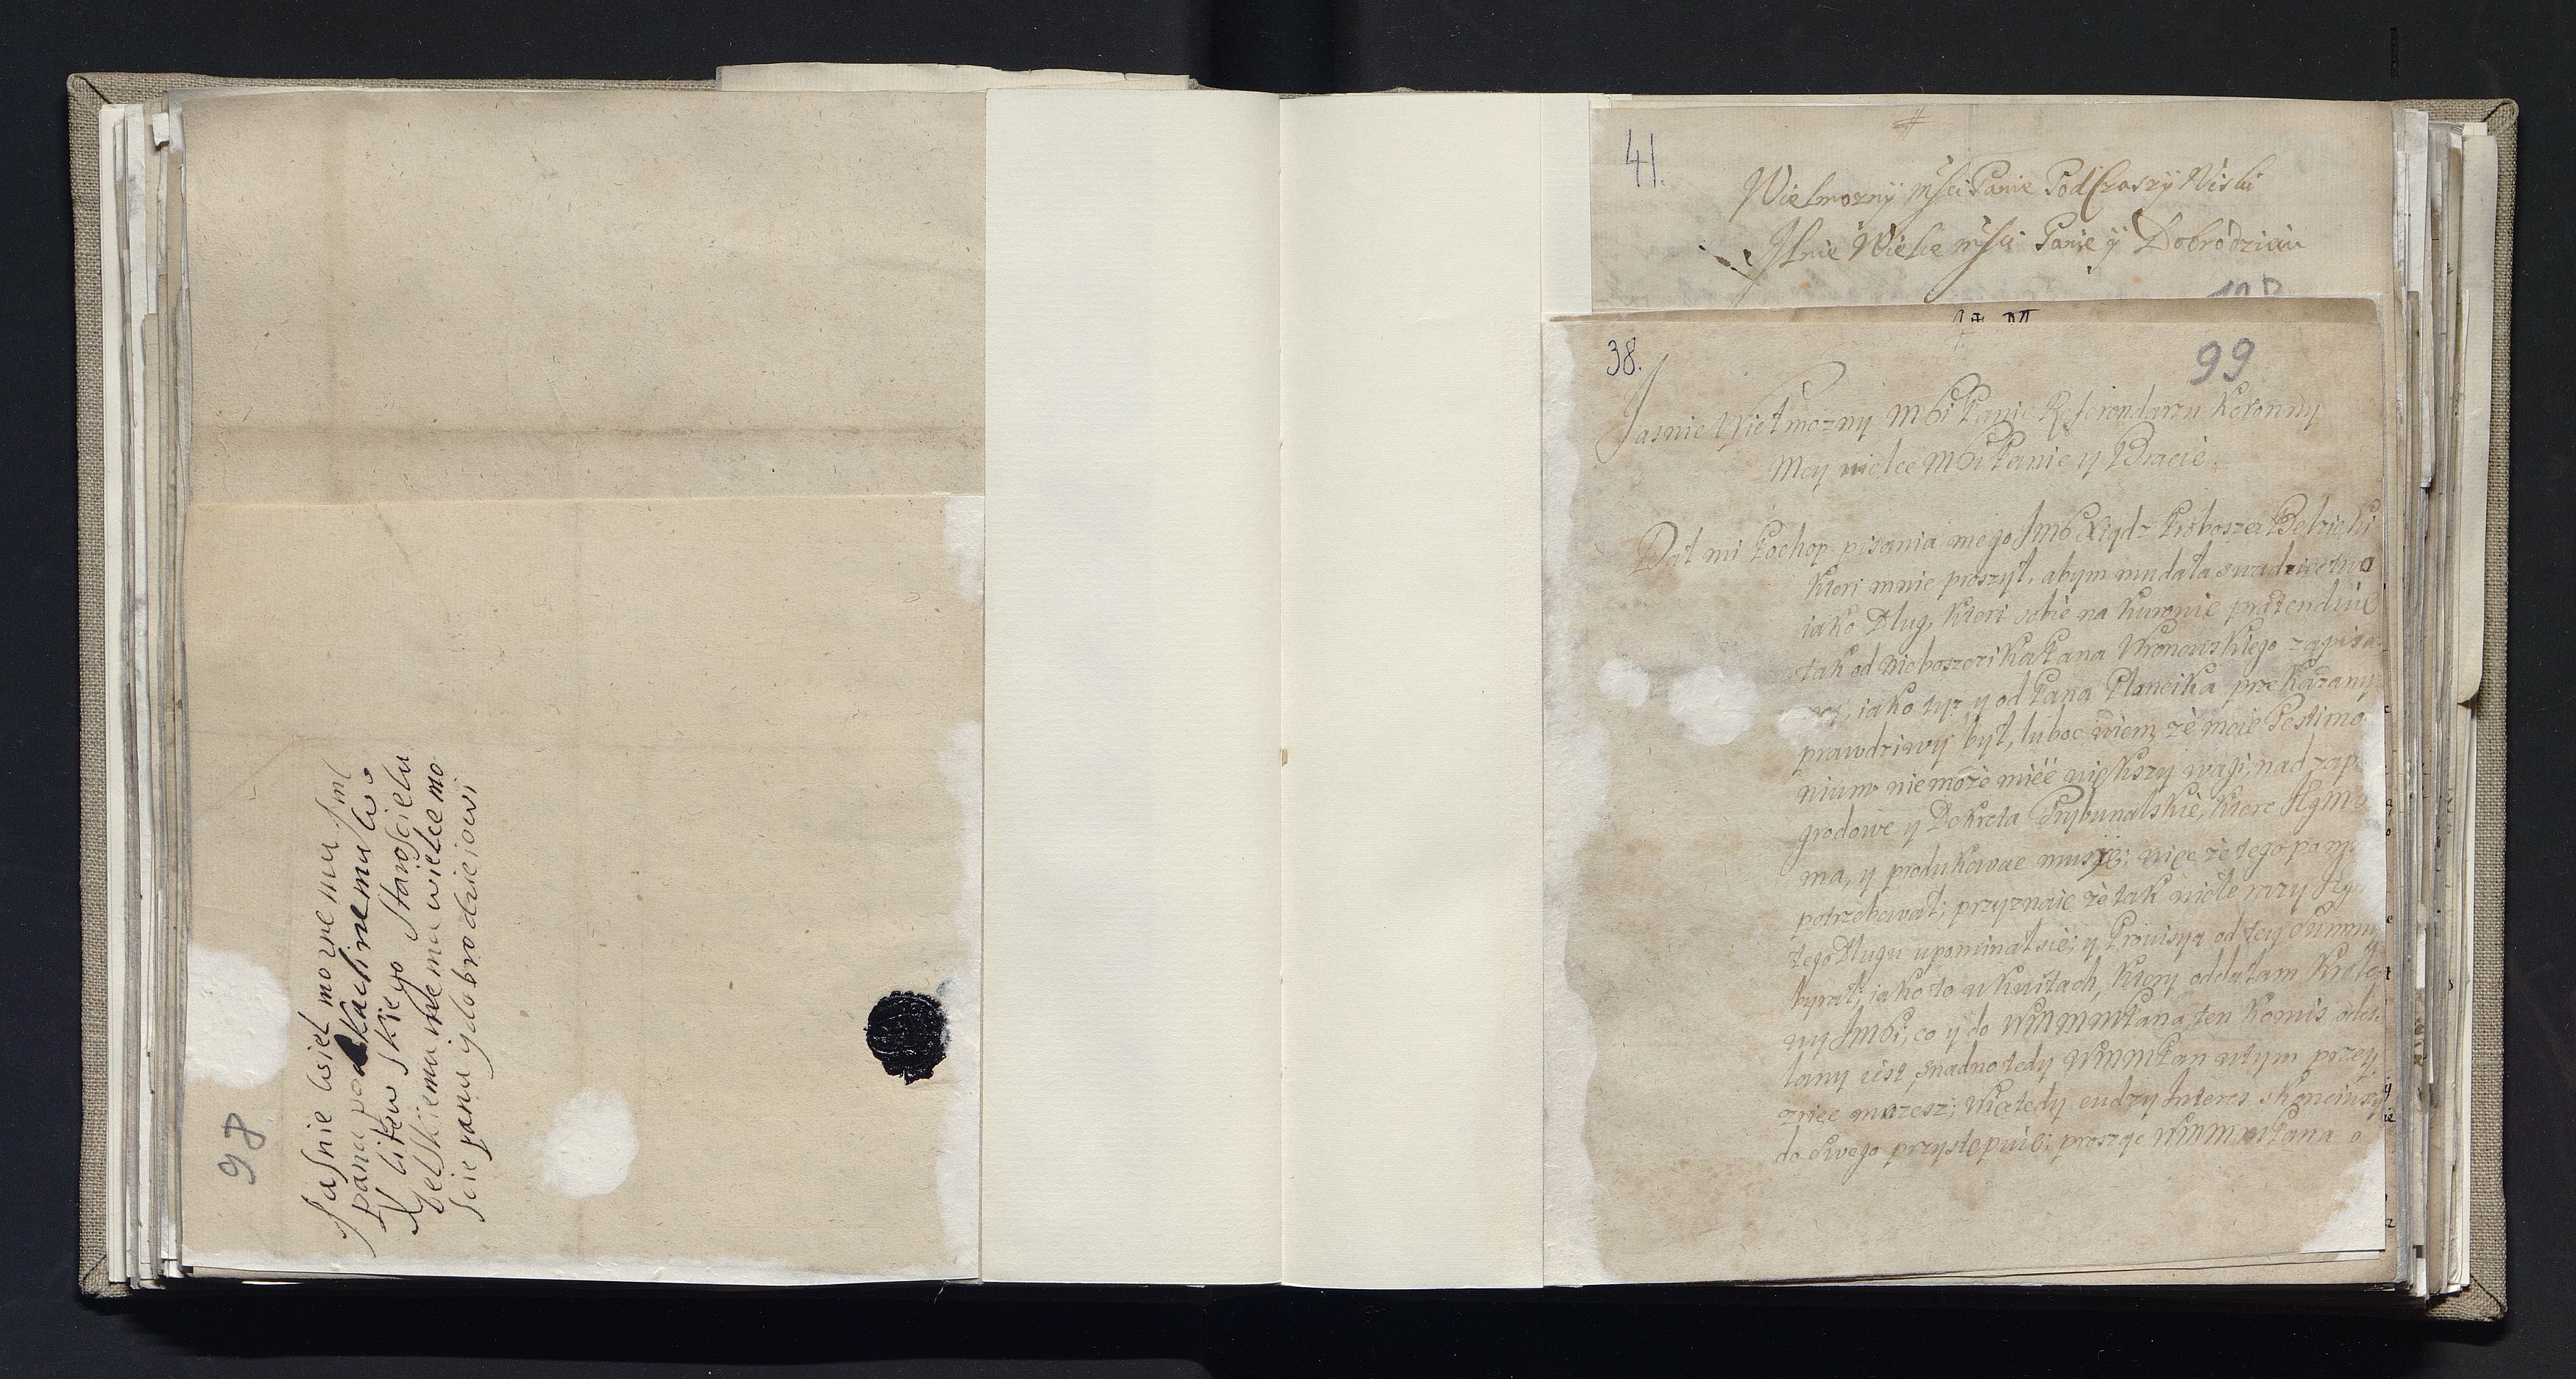 98
Jasnie wiel moznemu Jm
panu podkachnemu li
litew skiego Staroscielu
belskiemu mnemu wielce mo
scie panu y dobrodzieiowi
41.
Wielmozny Msci Panie Podczaszy
Mnie Wielce Msci Panie y Dobrodzieiu
38.
99
Jasnie Wielmozny Mći Panie Referendarzu Koronny
Moy wielce Mći Panie y Bracie
Dał mi Pochop pisania mego Jmć Xiądz Proboszcz Bełzicki
ktori mnie proszył, abym mu dała swiadzictwo
iako Dlug, ktori sobie na Kurowie prætenduie
tak od Nieboszczika Pana Wronowskiego zapisa
iako tyz y od Pana Planćika przekazany
prawdziwy był, luboc wiem, ze moie Testimo
nium niemoze mieć większy wagi, nad zap
grodowe y Dekreta Trybunalskie, ktore Xyms
ma, y produkowac musyi; więc ze tego po my
potrzebował; przyznaie ze tak wiele razy Xy
tego Dlugu upominał sie; y Prowisya od tey Summy
byrał; iako to w kwitach, ktory oddałam Krole
wy Jmći, co y do WMMMPana ten Komis odes
łany iest, snadno tedy WMMPan w tym przey
zrzec mozesz; Wię tedy cudzy Interes skonciwszy
do swego przystępuie; proszye WMMMPana o